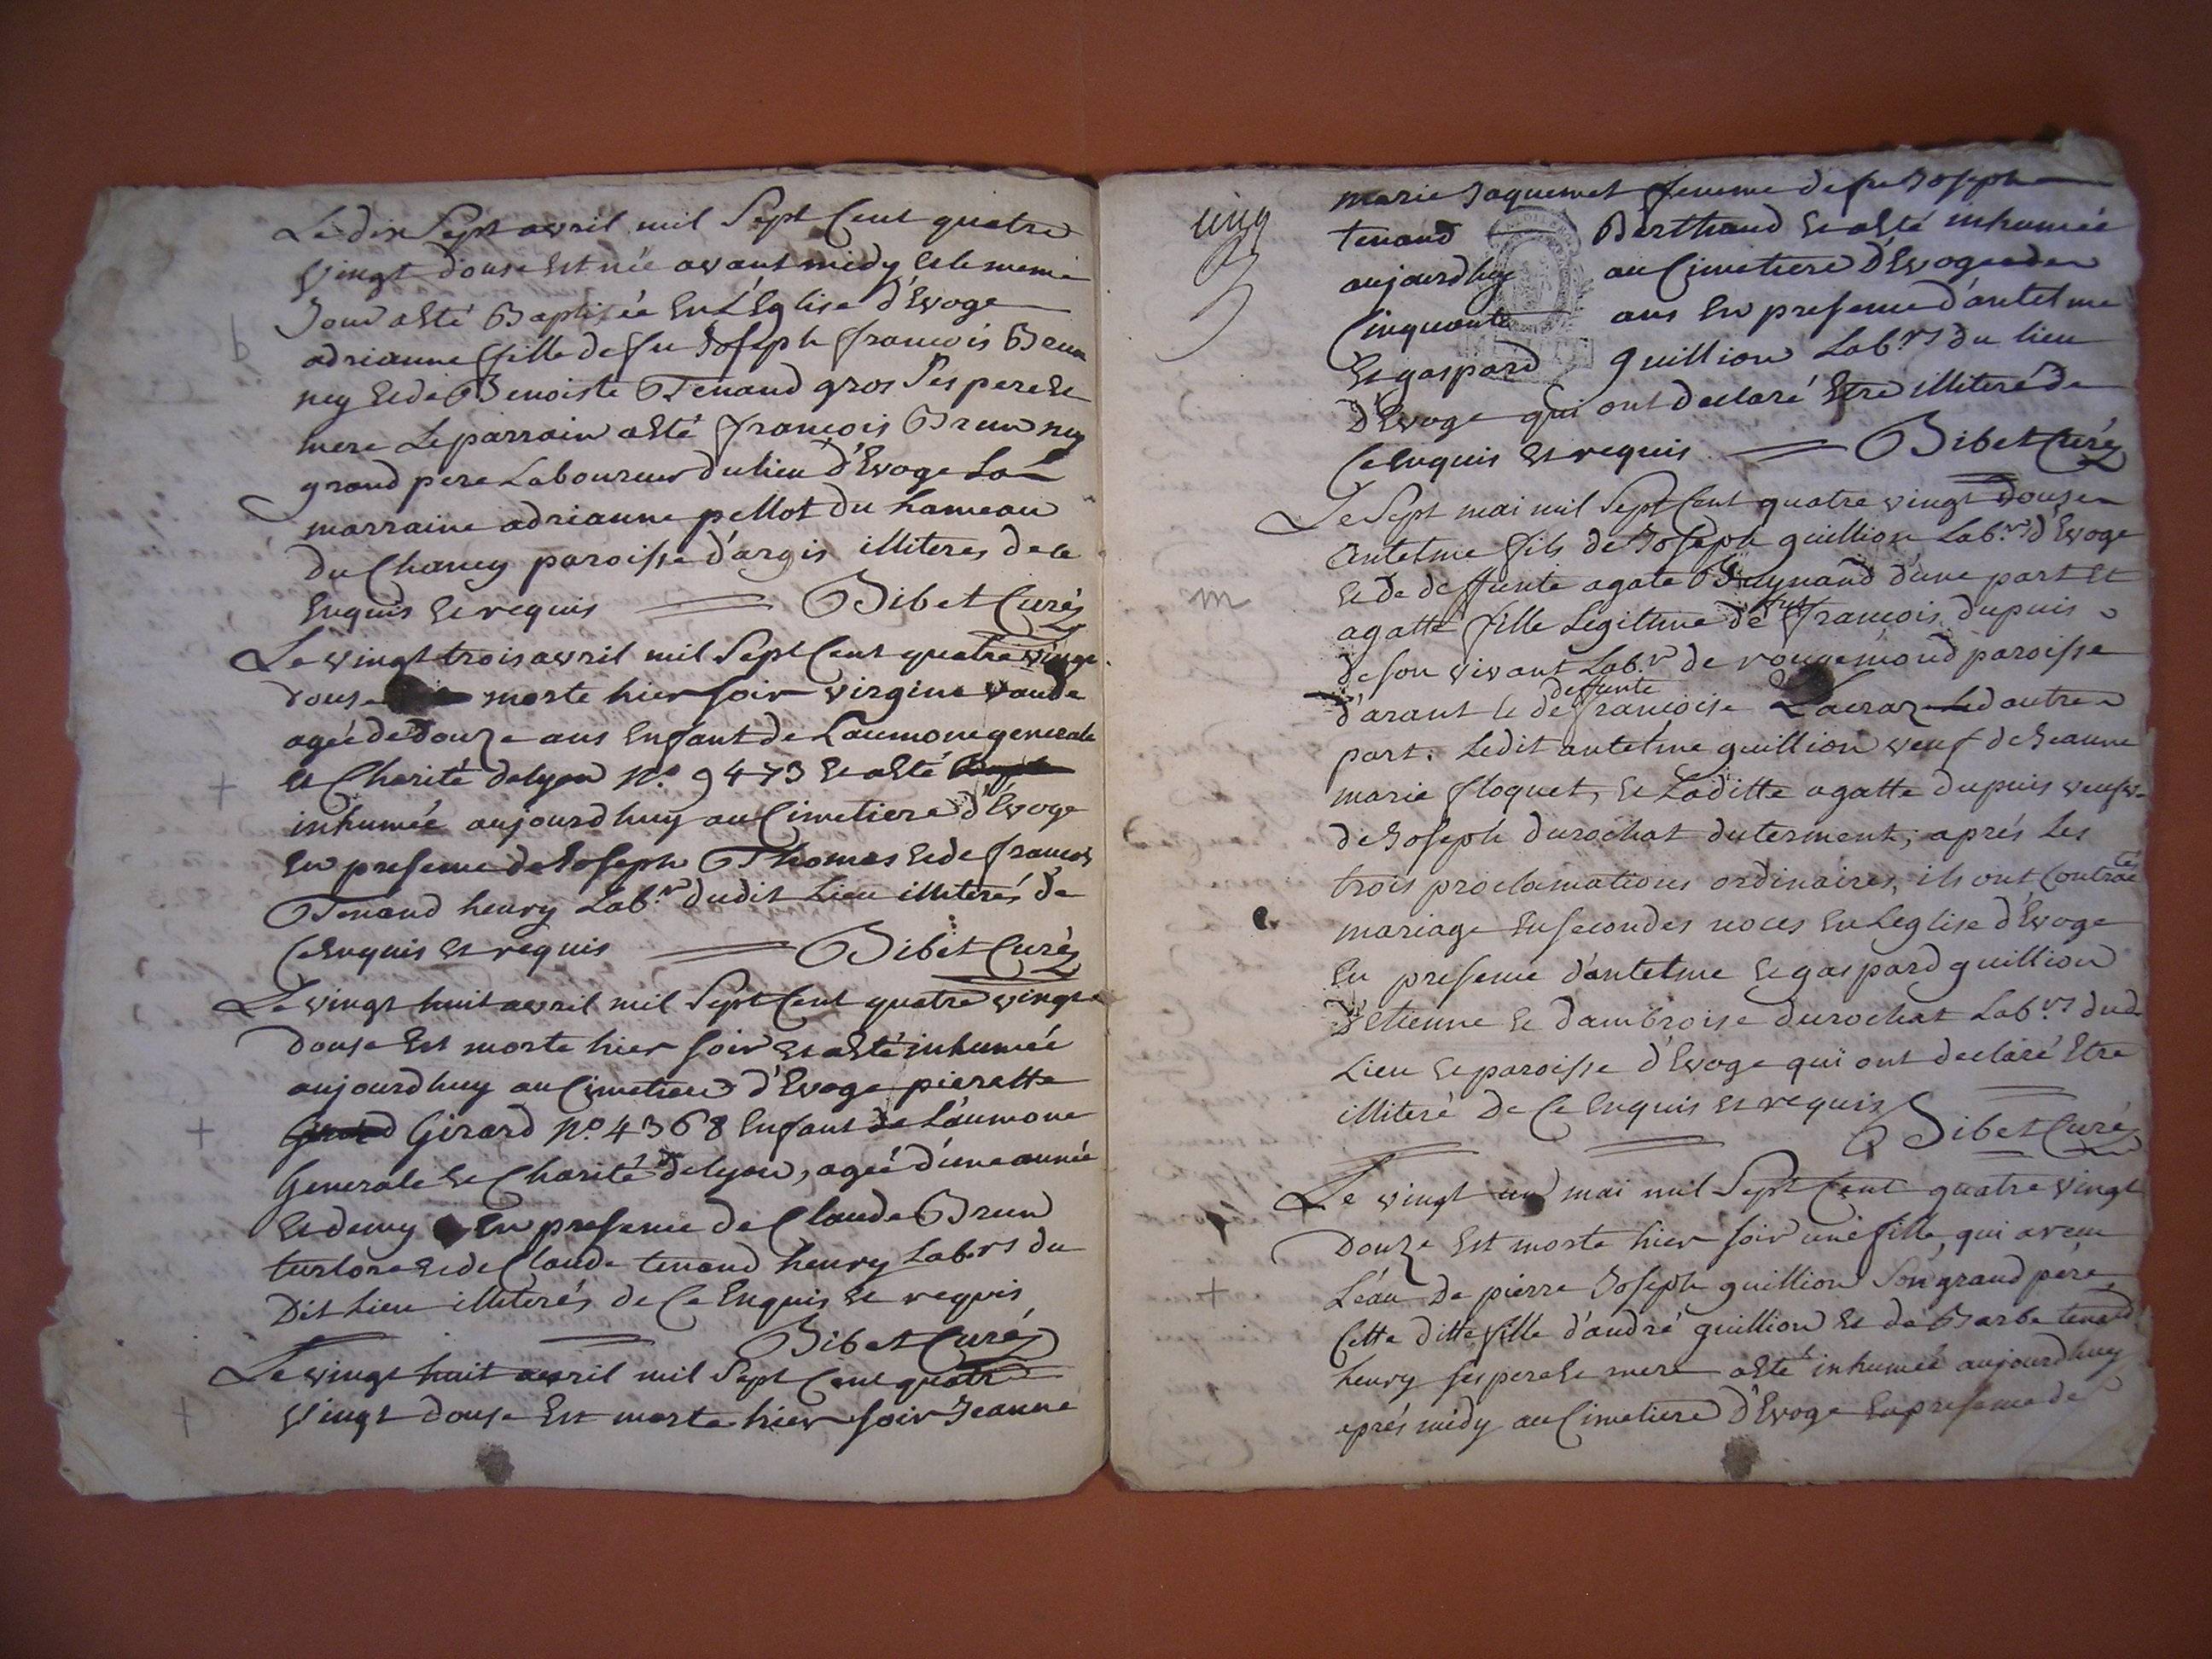 Le dix Sept avril mil Sept Cent quatre
vingt douse est née avant midy et le meme
Jour a eté Baptisée en L'Eglise d'Evoge
b
adrianne fille de feu Joseph françois Brun
ney et de Benoiste Tenand gros Ses pere et
mere Le parrain a eté françois Brun ney
grand pere Laboureur du lieu d'Evoge La
marraine adrianne pellot du hameau
du Chaney paroisse d'argis illiteres de ce
Enquis et requis Bibet Curé
Le vingt trois avril mil Sept Cent quatre vingt
douse morte hier soir virgine vande
agée de Douze ans Enfant de L'aumone generale
+
et Charité de lyon N.o 9473 et a eté
inhumée aujourdhuy au Cimetiere d'Evoge
En presence de Joseph Thomas et de françois
Tenand henry Lab.r dudit Lieu illiterés de
Ce Enquis et requis Bibet Curé
Le vingt huit avril mil Sept Cent quatre vingt
douse Est morte hier soir et a eté inhumée
aujourdhuy au Cimetiere d'Evoge pierette
+
Girard N.o 4368 Enfant de L'aumone
Generale et Charité de lyon, agée d'une année
et demy En presence de Claude Brun
turlore et de Claude tenand henry Lab.rs du
Dit Lieu illiterés de Ce Enquis et requis
Bibet Curé
Le vingt huit avril mil Sept Cent quatre
+
vingt douse Est morte hier soir Jeanne
cinq
5
marie Jaquemet femme de feu Joseph
tenand Berthand et a eté inhumée
aujourdhuy au Cimetiere D'Evoge
Cinquante ans En presence d'antelme
Et gaspard guillion Lab.rs du lieu
D'Evoge qui ont declaré Etre illiteré de
Ce Enquis et requis Bibet Curé
Le Sept mai mil Sept Cent quatre vingt douse
antelme fils de Joseph guillion Lab.r d'Evoge
m
et de deffunte agate Reynand d'une part et
agatte fille Legitime de feu françois dupuis
de son vivant Lab.r de rougemond paroisse
d'arant et de deffunte francoise Lacraz d'autre
part. Ledit antelme guillion veuf de Jeanne
marie floquet, et Laditte agatte dupuis veufve
de Joseph durochat du terment, aprés Les
trois proclamations ordinaires, ils ont Contracté
mariage En secondes noces En Leglise d'Evoge
En presence d'antelme et gaspard guillion
D'Etienne et d'ambroise durochat Lab.rs dud
Lieu et paroisse d'Evoge qui ont declaré Etre
illiteré De Ce Enquis et requis
Bibet Curé
Le vingt un mai mil Sept Cent quatre vingt
Douze Est morte hier soir une fille, qui a reçu
+
L'éau De pierre Joseph guillion Son grand pere
Cette ditte fille d'andré guillion et de Barbe tenand
henry ses pere et mere a eté inhumée aujourdhuy
aprés midy au Cimetiere D'Evoge En presence de